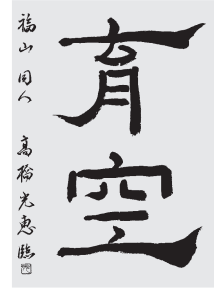 育空
福山 同人 高橋光惠臨